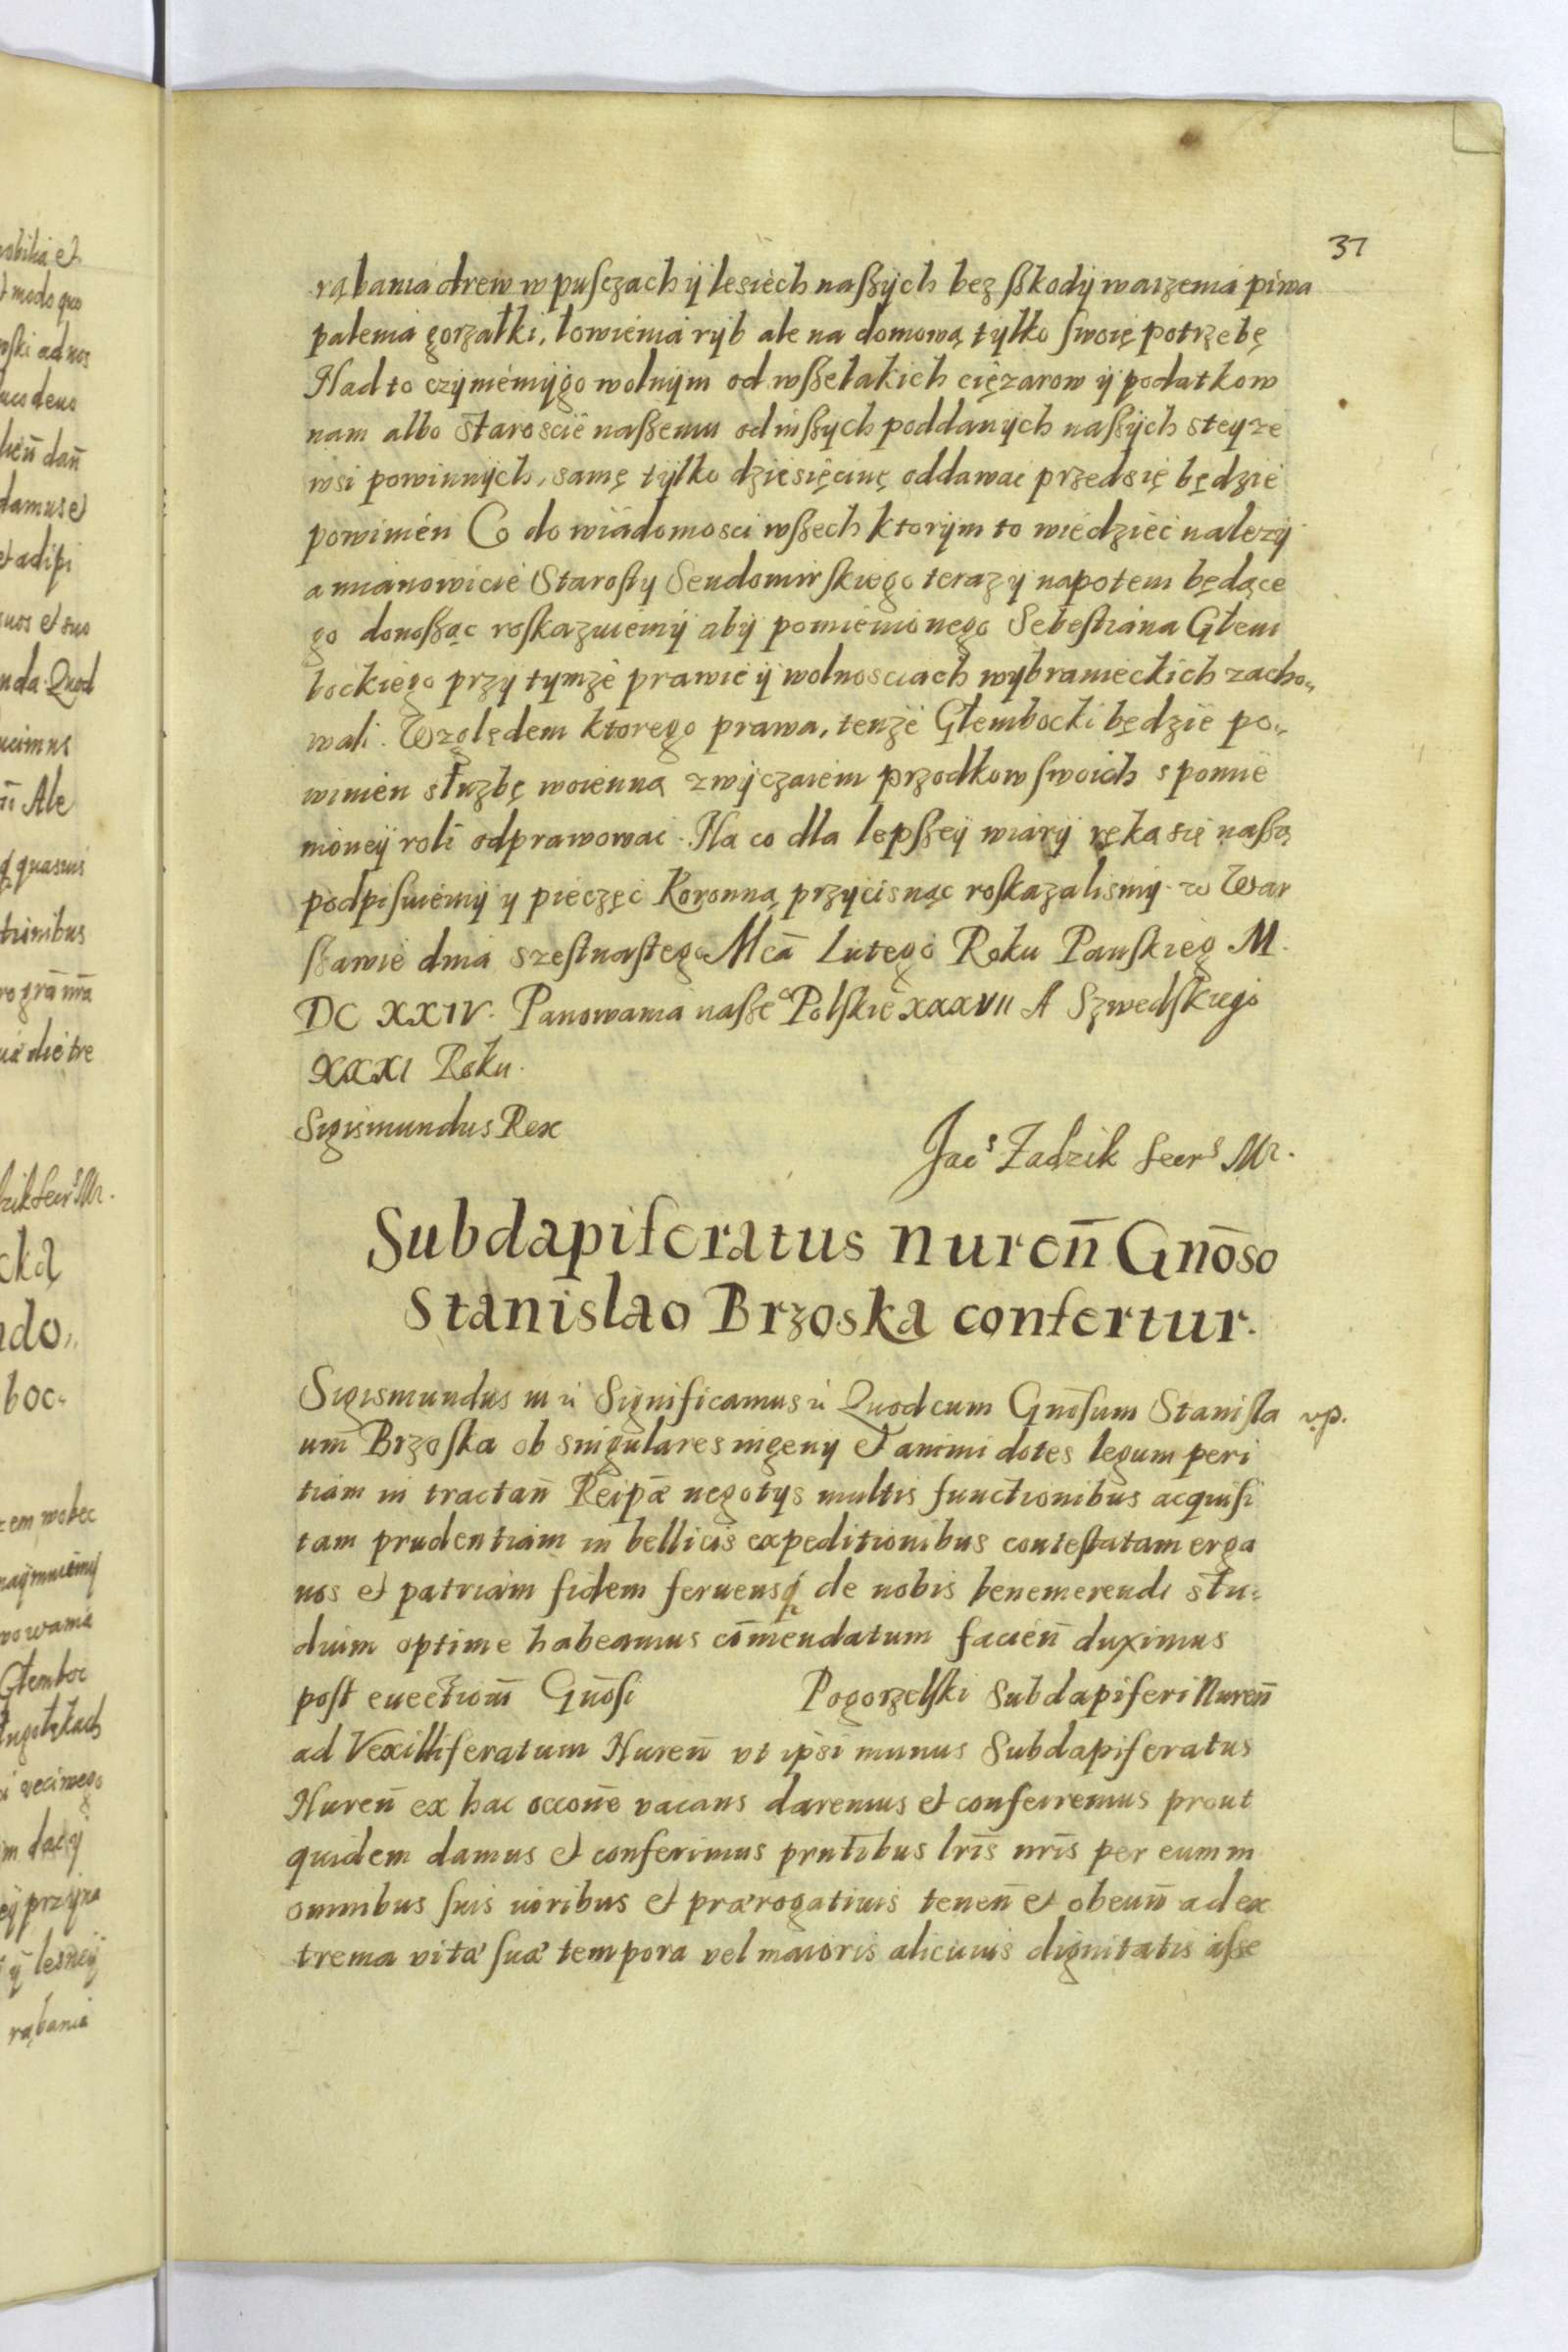 37
rąbania drew w pusczach ÿ lesiech naßÿch bez ßkodÿ warzenia piwa
palenia gorzałki, łowienia rÿb ale na domową tylko swoię potrzebę
Nad to czÿniemÿ go wolnÿm od wßelakich ciężarow ÿ podatkow
nam albo staroscie naßemu od inßÿch poddanÿch naßÿch s teÿ ze
wsi powinnÿch, samę tÿlko dziesięcinę oddawac przedsię będzie
powinien Co do wiadomosci wßech ktorÿm to wiedziec nalezÿ
a mianowicie Starosty Sendomirskiego teraz ÿ napotem będące
go donoßąc roskazuiemÿ abÿ pomienionego Sebestiana Głem
bockiego przÿ tymze prawie ÿ wolnosciach wÿbranieckich zacho„
wali. Względem ktorego prawa, tenże Głembocki będzie po„
winien służbę woienną zwÿczaiem przodkow swoich s pomie
nioneÿ roli odprawowac. Na co dla lepßeÿ wiarÿ ręką się naßą
podpisuiemÿ y pieczęc Koronną przÿcisnąc roskazalismÿ. w War
ßawie dnia szestnastego Mcā Lutego Roku Panskieg M.
DC XXIV. Panowania naßeº Polskieº XXXVII A Szwedskiego
XXXI Roku.
Sigismundus Rex
Jacˢ Zadzik Secrˢ Mr.
Subdapiferatus Nureñ Gnōso
Stanislao Brzoska confertur.
Sigismundus III rc Significamus rc Quod cum Gnōsum Stanisla
v.p.
um Brzoska ob singulares ingenÿ et animi dotes legum peri
tiam in tractañ Reipæ negotÿs multis functionibus acquisi
tam prudentiam in bellicis expeditionibus contestatam erga
nos et patriam fidem feruensq̨ de nobis benemerendi stu:
dium optime habeamus com̄endatum facieñ duximus
post euectiom̄ Gnōsi Pogorzelski Subdapiferi Nureñ
ad Vexilliferatum Nureñ vt ipsi munus Subdapiferatus
Nureñ ex hac occoñe vacans daremus et conferremus prout
quidem damus et conferimus pruñtibus lrīs nrīs per eum in
omnibus suis iuribus et prærogatiuis teneñ et obeuñ ad ex
trema vitæ suæ tempora vel maioris alicuius dignitatis asse